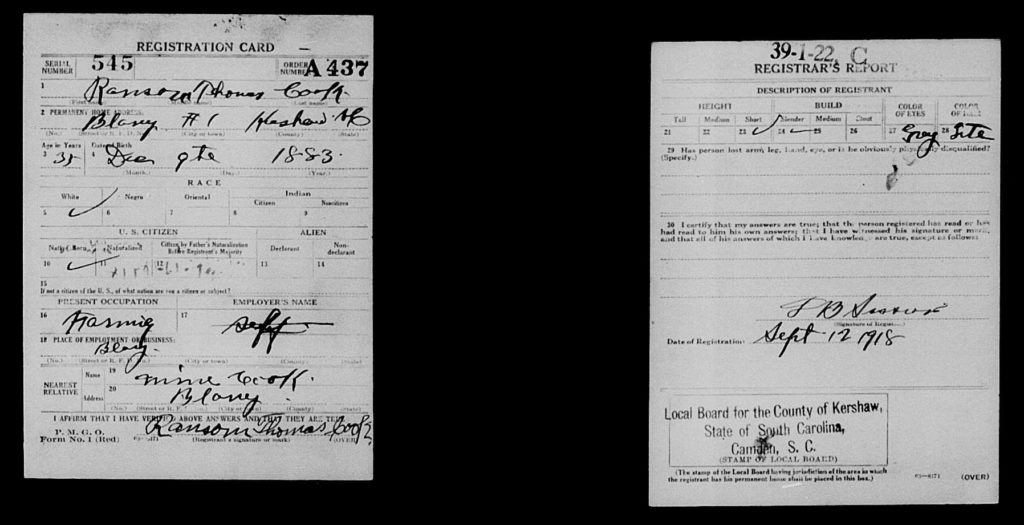 REGISTRATION CARD
SERIAL NUMBER 545 ORDER NUMBER A 437
1 Ransom Thomas Cook
(First name) (Last name)
2 PERMANENT HOME ADDRESS:
Blaney #1 Kershaw SC
(No.) (Street or R. F. D. No.) (City or town) (County) (State)
Age in Years Date of Birth
3 35 4 Dec 9th 1883.
(Month.) (Day.) (Year.)
RACE
White Negro Oriental Indian
Citizen Noncitizen
5 6 7 8 9
U. S. CITIZEN ALIEN
Native Born Naturalized Citizen by Father's Naturalization Before Registrant's Majority Declarant Non-declarant
10 11 12 13 14
15
If not a citizen of the U. S., of what nation are you a citizen or subject?
PRESENT OCCUPATION EMPLOYER'S NAME
16 Farming 17 self
18 PLACE OF EMPLOYMENT OR BUSINESS:
Blaney
(No.) (Street or R. F. D. No.) (City or town) (County) (State)
NEAREST RELATIVE Name 19 Cook.
Address 20 Blaney
(No.) (Street or R. F. D. No.) (City or town) (County) (State)
I AFFIRM THAT I HAVE VERIFIED ABOVE ANSWERS AND THAT THEY ARE TRUE
P. M. G. O.
Form No. 1 (Red) Ransom Thomas Cook
(Registrant's signature or mark) (OVER)
39-1-22. C
REGISTRAR'S REPORT
DESCRIPTION OF REGISTRANT
HEIGHT BUILD COLOR OF EYES COLOR OF HAIR
Tall Medium Short Slender Medium Stout
21 22 23 24 25 26 27 Grey 28 Lite
29 Has person lost arm, leg, hand, eye, or is he obviously physically disqualified?
(Specify.)
30 I certify that my answers are true; that the person registered has read or has
had read to him his own answers; that I have witnessed his signature or mark,
and that all of his answers of which I have knowledge are true, except as follows:
(Signature of Registrar)
Date of Registration Sept 12 1918
Local Board for the County of Kershaw,
State of South Carolina,
Camden, S. C.
(STAMP OF LOCAL BOARD)
(The stamp of the Local Board having jurisdiction of the area in which
the registrant has his permanent home shall be placed in this box.)
03—6171 (OVER)